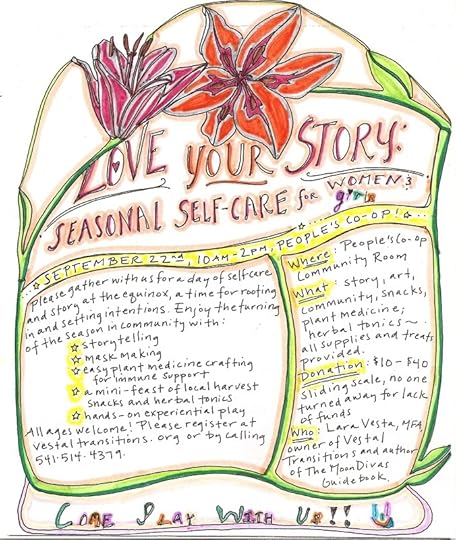 LOVE YOUR STORY:
SEASONAL SELF-CARE for WOMEN & girls
SEPTEMBER 22nd, 10AM-2PM, PEOPLE'S CO-OP!
Please gather with us for a day of selfcare
and story at the equinox, a time for rooting
in and setting intentions. Enjoy the turning
of the season in community with:
☆ storytelling
☆ mask making
☆ easy plant medicine crafting
for immune support
☆ a mini-feast of local harvest
snacks and herbal tonics
☆ hands-on experiential play
All ages welcome! Please register at
vestal transitions.org or by calling
541.514.4379.
Where: People's Co-op
Community Room
What: story, art,
community, snacks,
plant medicine;
herbal tonics ~
all supplies and treats
provided.
Donation: $10-$40
sliding scale, no one
turned away for lack
of funds
Who: Lara Vesta, MFA,
owner of Vestal
Transitions and author
of The Moon Divas
Guidebook.
COME PLAY WITH US!!